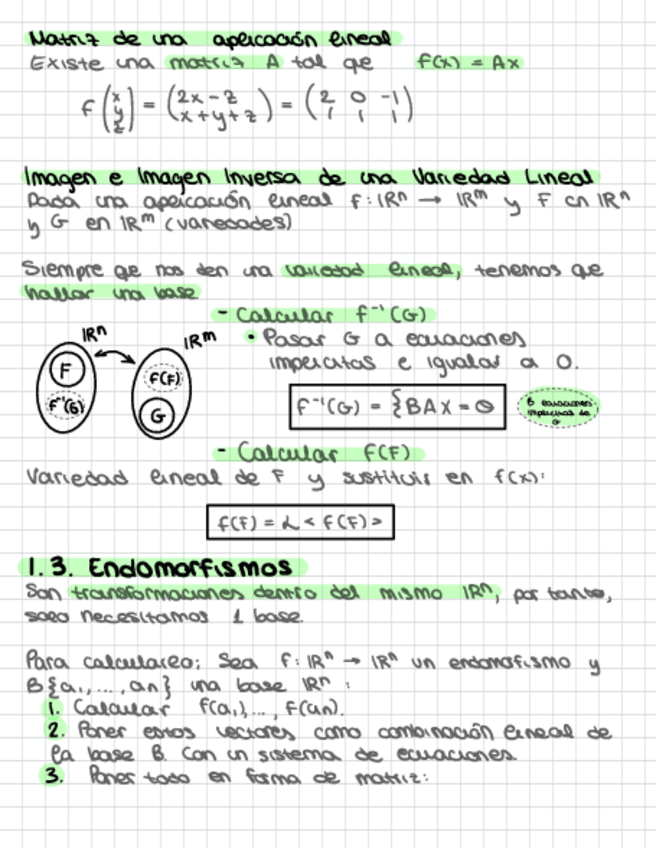 Matriz de una aplicación lineal
Existe una matriz A tal que f(x) = Ax
f (x y z) = (2x - z x + y + z) = (2 0 -1 1 1 1)
Imagen e Imagen Inversa de una Variedad Lineal
Dada una aplicación lineal f: IRⁿ → IRᵐ y F en IRⁿ
y G en IRᵐ (variedades)
Siempre que nos den una variedad lineal, tenemos que
hallar una base
- Calcular f⁻¹(G)
• Pasar G a ecuaciones
implícitas e igualar a 0.
IRⁿ IRᵐ
F f⁻¹(G) f(F) G
f⁻¹(G) = {BAX = 0
B ecuaciones
implícitas de
G
- Calcular f(F)
Variedad lineal de F y sustituir en f(x):
f(F) = L < f(F) >
1.3. Endomorfismos
Son transformaciones dentro del mismo IRⁿ, por tanto,
solo necesitamos 1 base.
Para calcularlo: Sea f: IRⁿ → IRⁿ un endomofismo y
B{a₁, ..., an} una base IRⁿ :
1. Calcular f(a₁), ..., f(an).
2. Poner estos vectores como combinación lineal de
la base B. Con un sistema de ecuaciones.
3. Poner todo en forma de matriz: